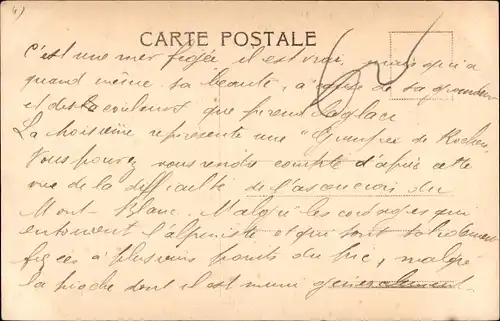 4)
CARTE POSTALE
C'est une mer figée il est vrai, mais qui a
quand même sa beauté, à cause de sa grandeur
et des couleurs que prend la glace
La troisième représente une "Grimpée de Rocher,
Vous pouvez vous rendre compte d'après cette
vue de la difficulté de l'ascension du
Mont-Blanc. Malgré les cordages qui
entourent l'alpiniste et qui sont solidement
fixées à plusieurs points du pic, malgré
la pioche dont il est muni généralement